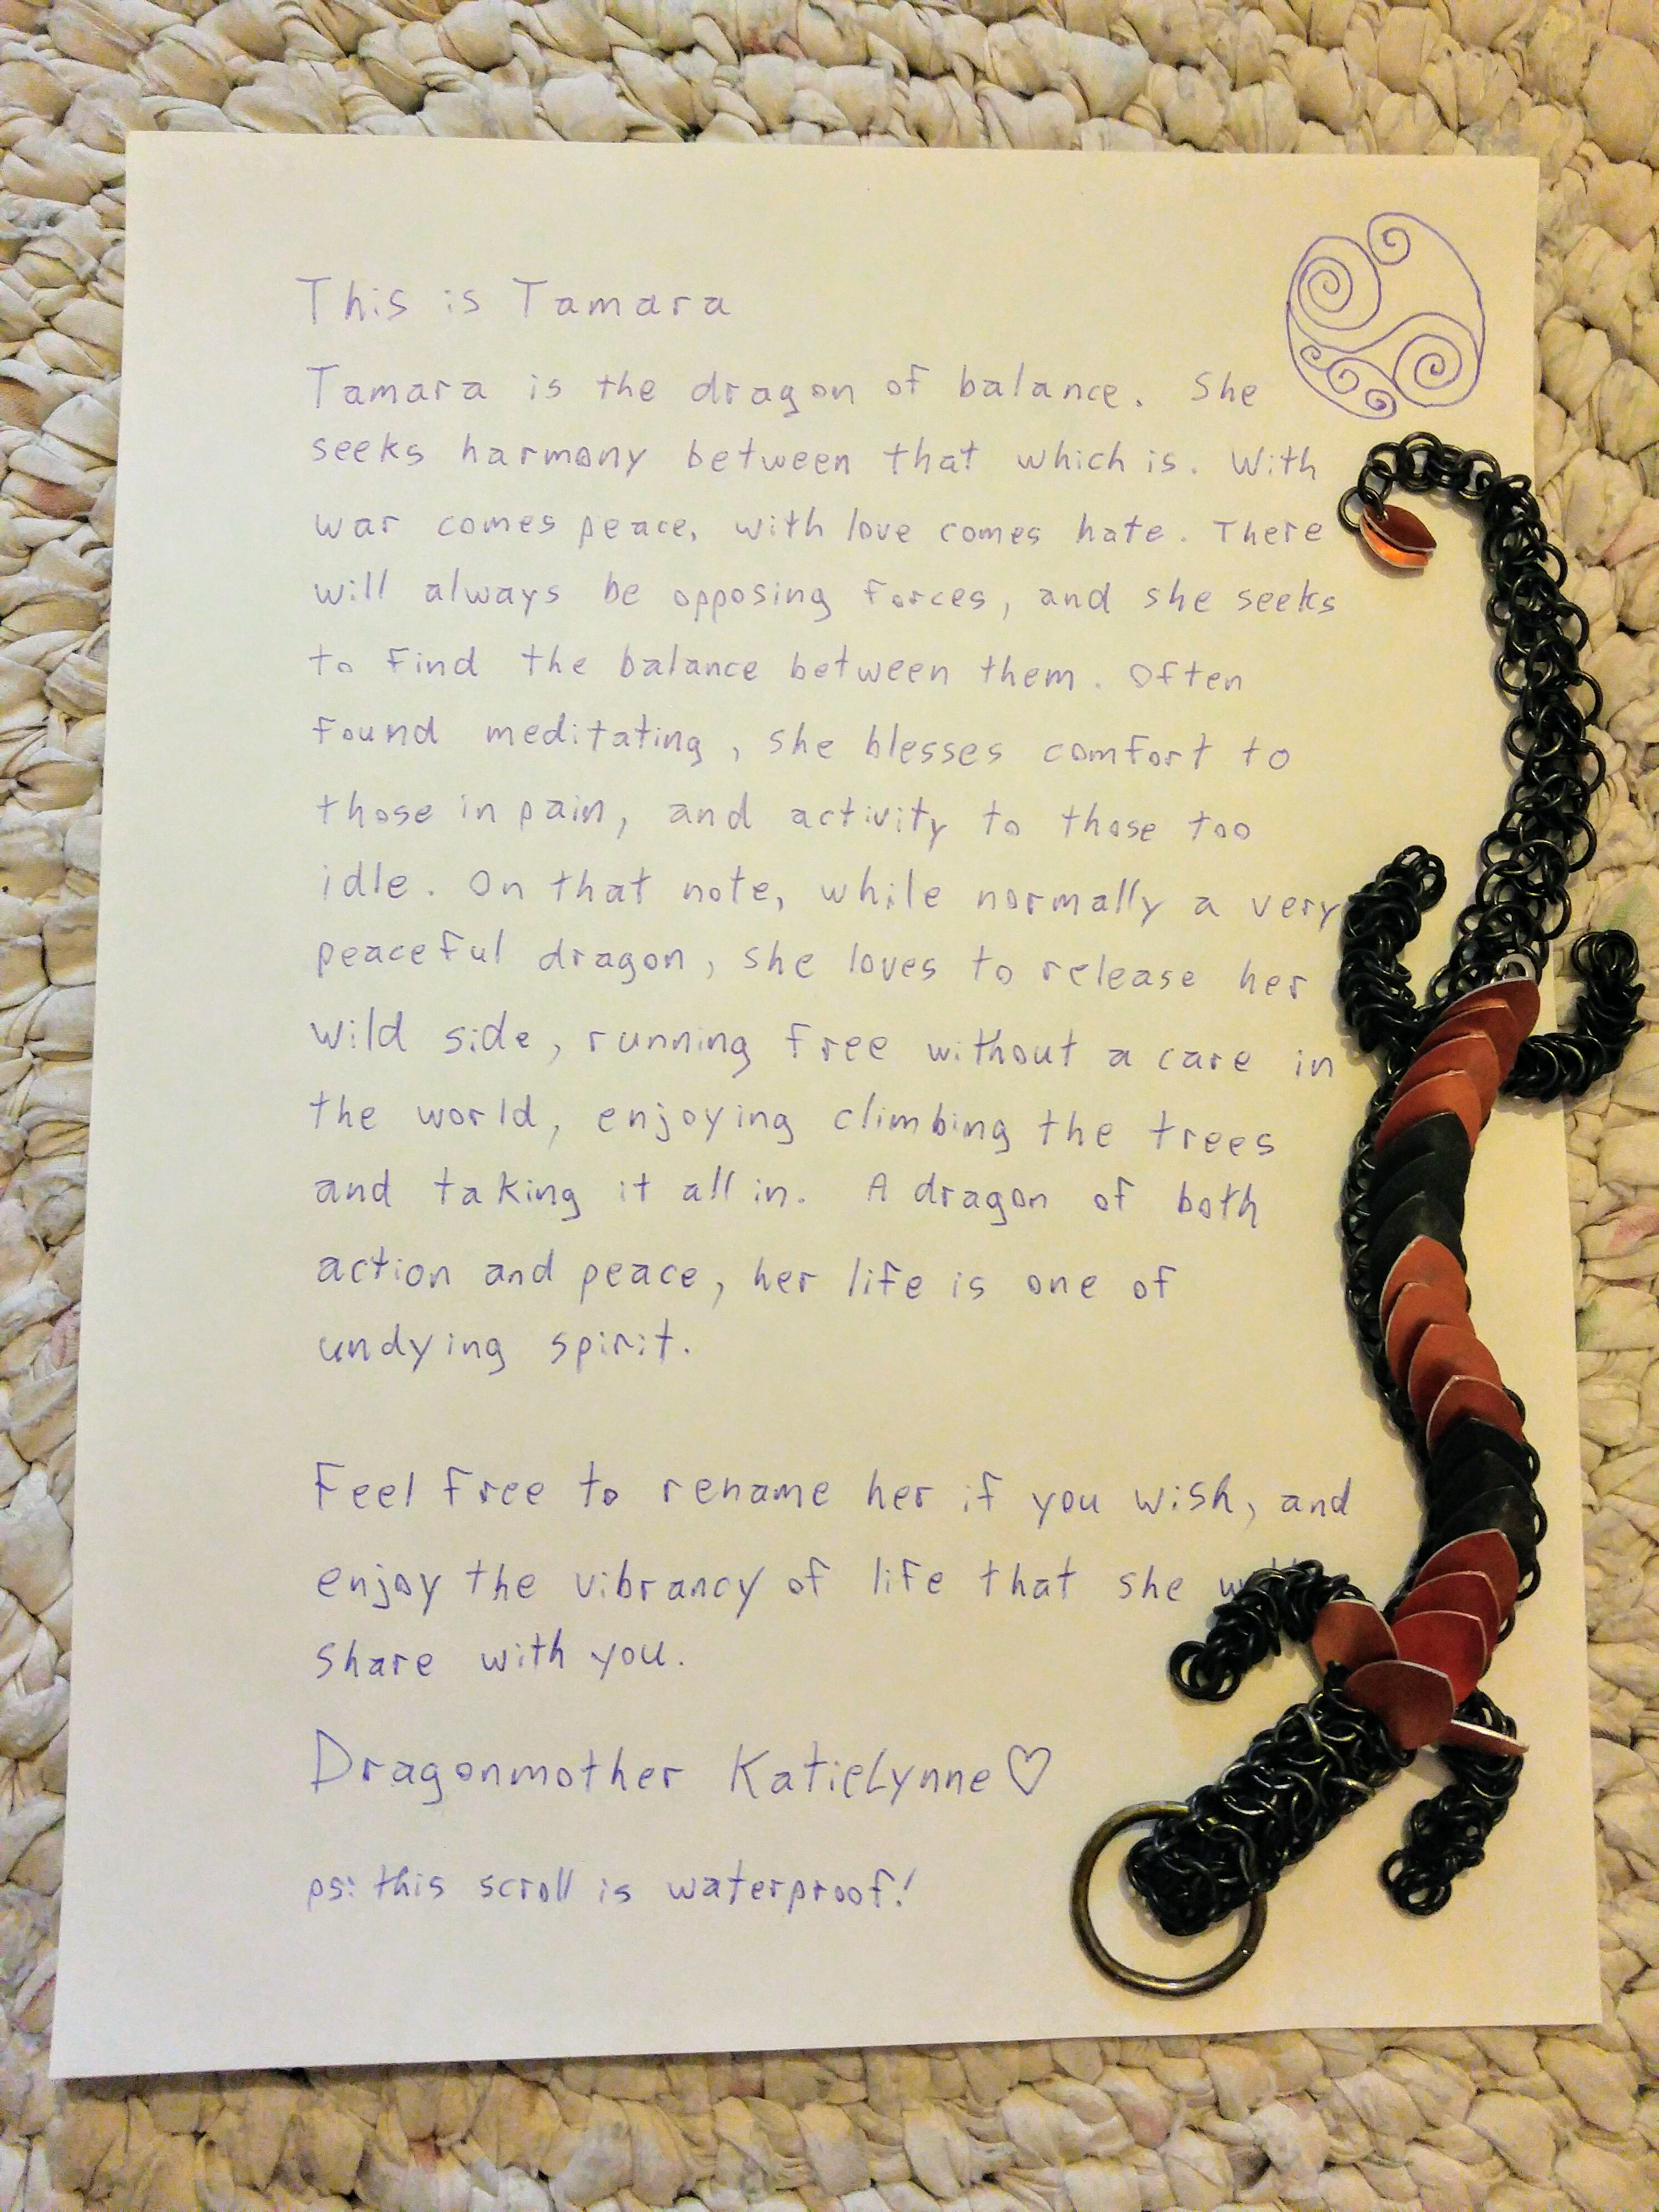 This is Tamara
Tamara is the dragon of balance. She
seeks harmony between that which is. With
war comes peace, with love comes hate. There
will always be opposing forces, and she seeks
to find the balance between them. Often
found meditating, she blesses comfort to
those in pain, and activity to those too
idle. On that note, while normally a very
peaceful dragon, she loves to release her
wild side, running free without a care in
the world, enjoying climbing the trees
and taking it all in. A dragon of both
action and peace, her life is one of
undying spirit.
Feel free to rename her if you wish, and
enjoy the vibrancy of life that she
share with you.
Dragonmother KatieLynne♡
ps: this scroll is waterproof!